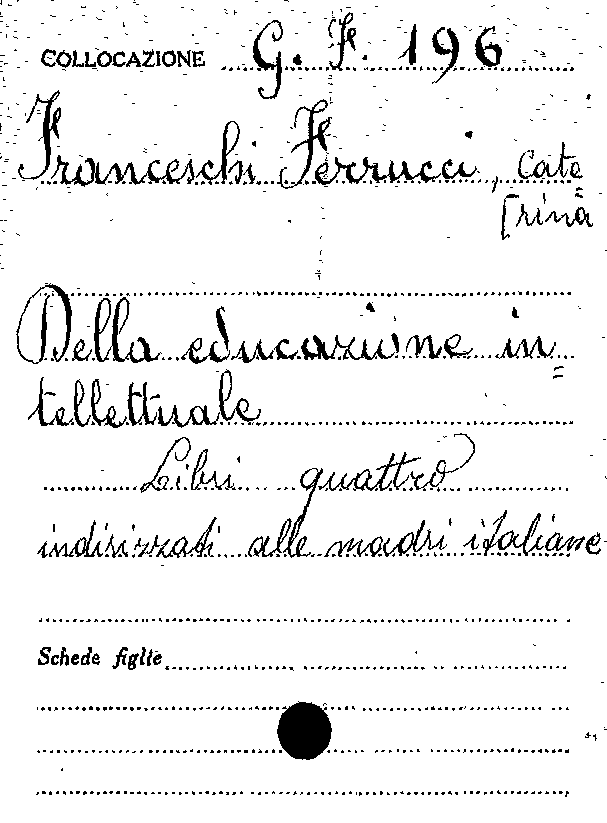 COLLOCAZIONE G. F. 196
Franceschi Ferrucci, Cate
[rina
Della educazione in=
tellettuale
Libri quattro
indirizzati alle madri italiane
Schede figlie